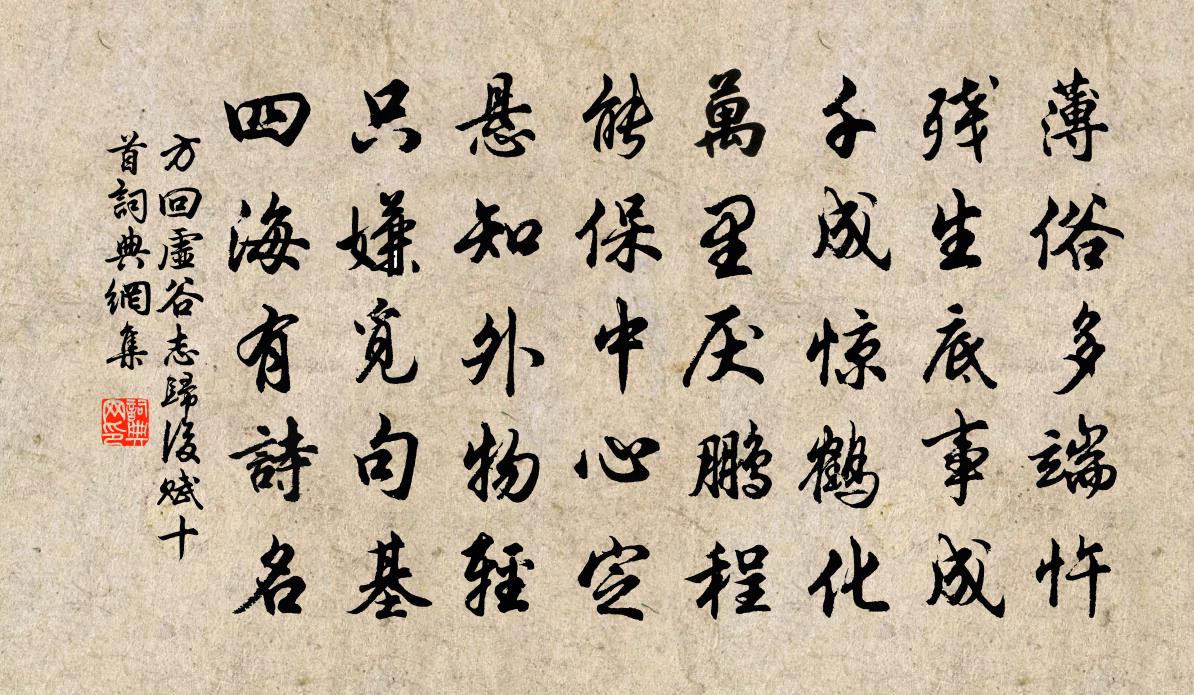 薄俗多端忤
残生底事成
千成惊鹤化
萬里厌鹏程
能保中心定
悬知外物輕
只嫌觅句基
四海有詩名
方回虚谷志歸後赋十
首詞典網集
詞典
网印